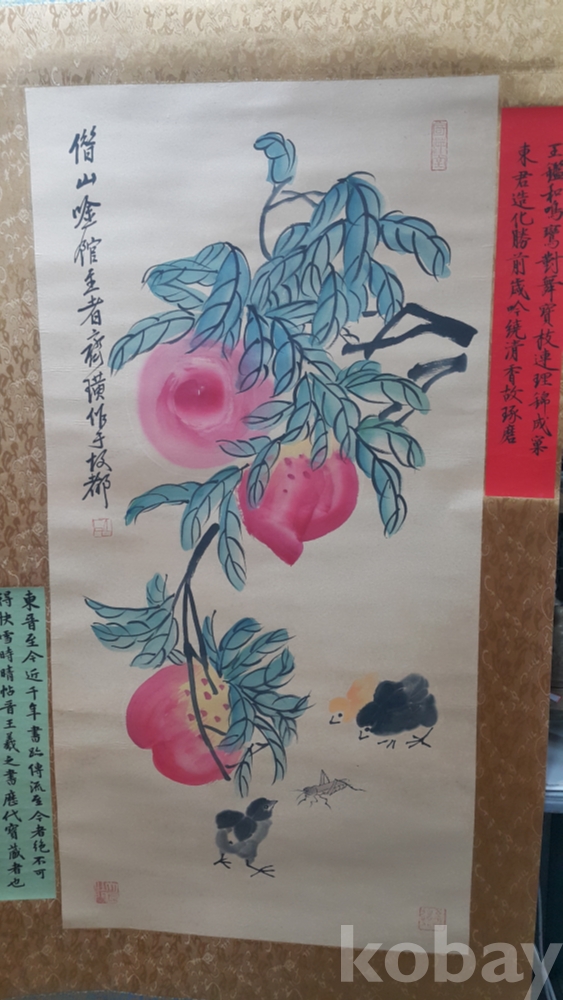 玉鑑和鳴鸞對舞寶枝連理錦成窠
東君造化勝前歲吟繞清香故琢磨
借山唫館主者齊璜作于故都
東晉至今近千年書跡傳流至今者絶不可
得快雪時晴帖晉王羲之書歷代寶藏者也
kobay